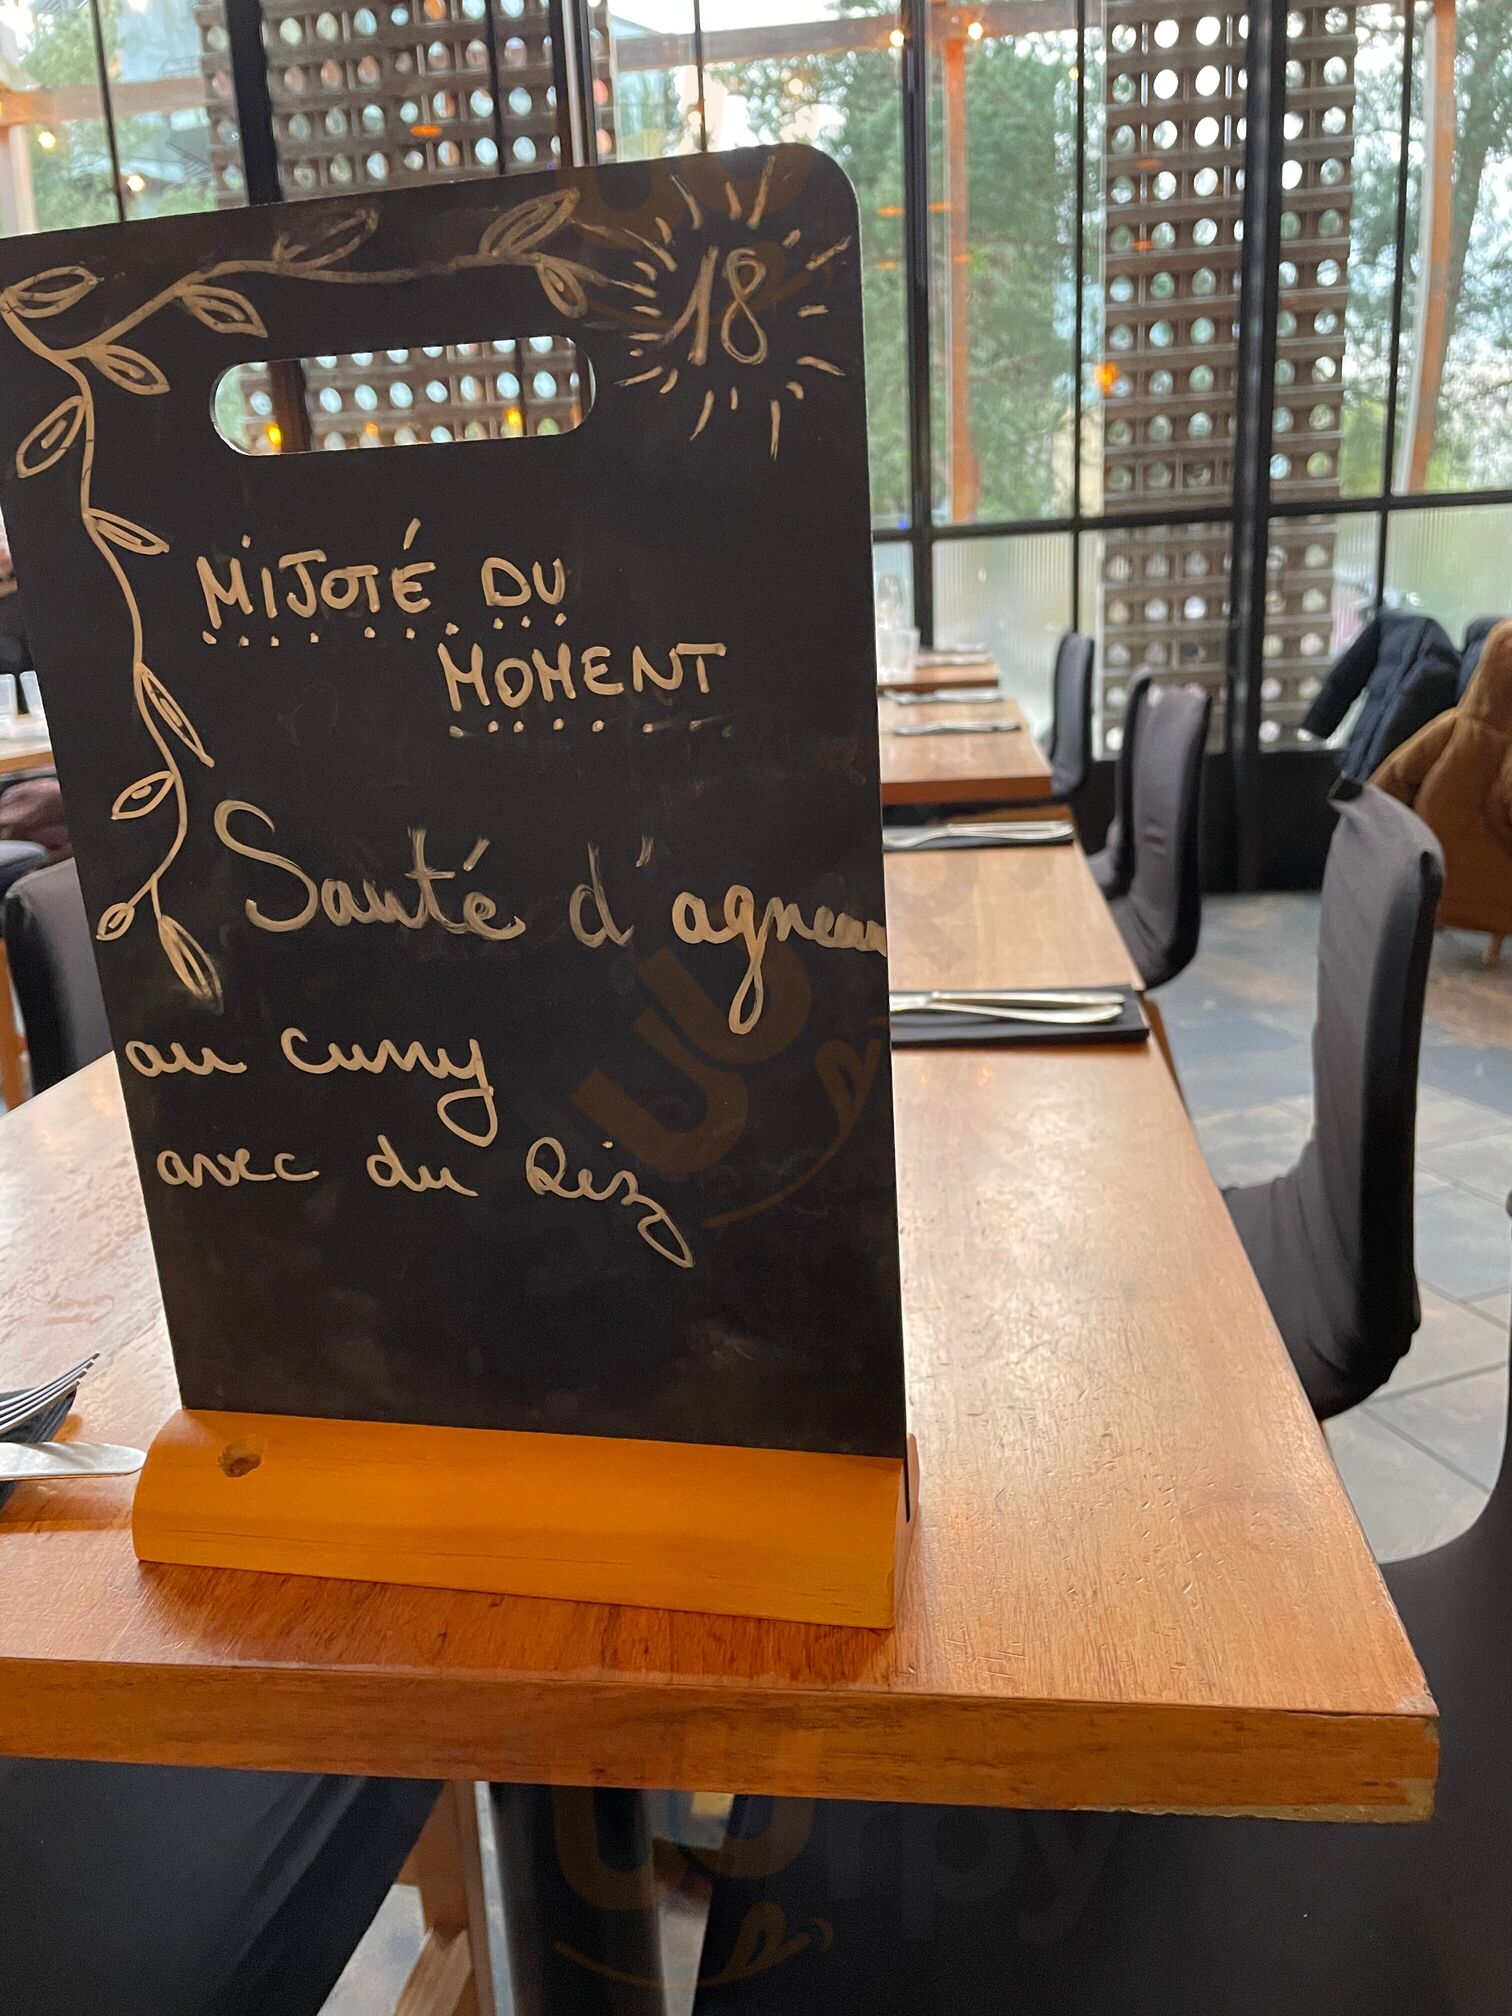 18
MIJOTÉ DU
MOMENT
Sauté d'agneau
au curry
avec du Riz